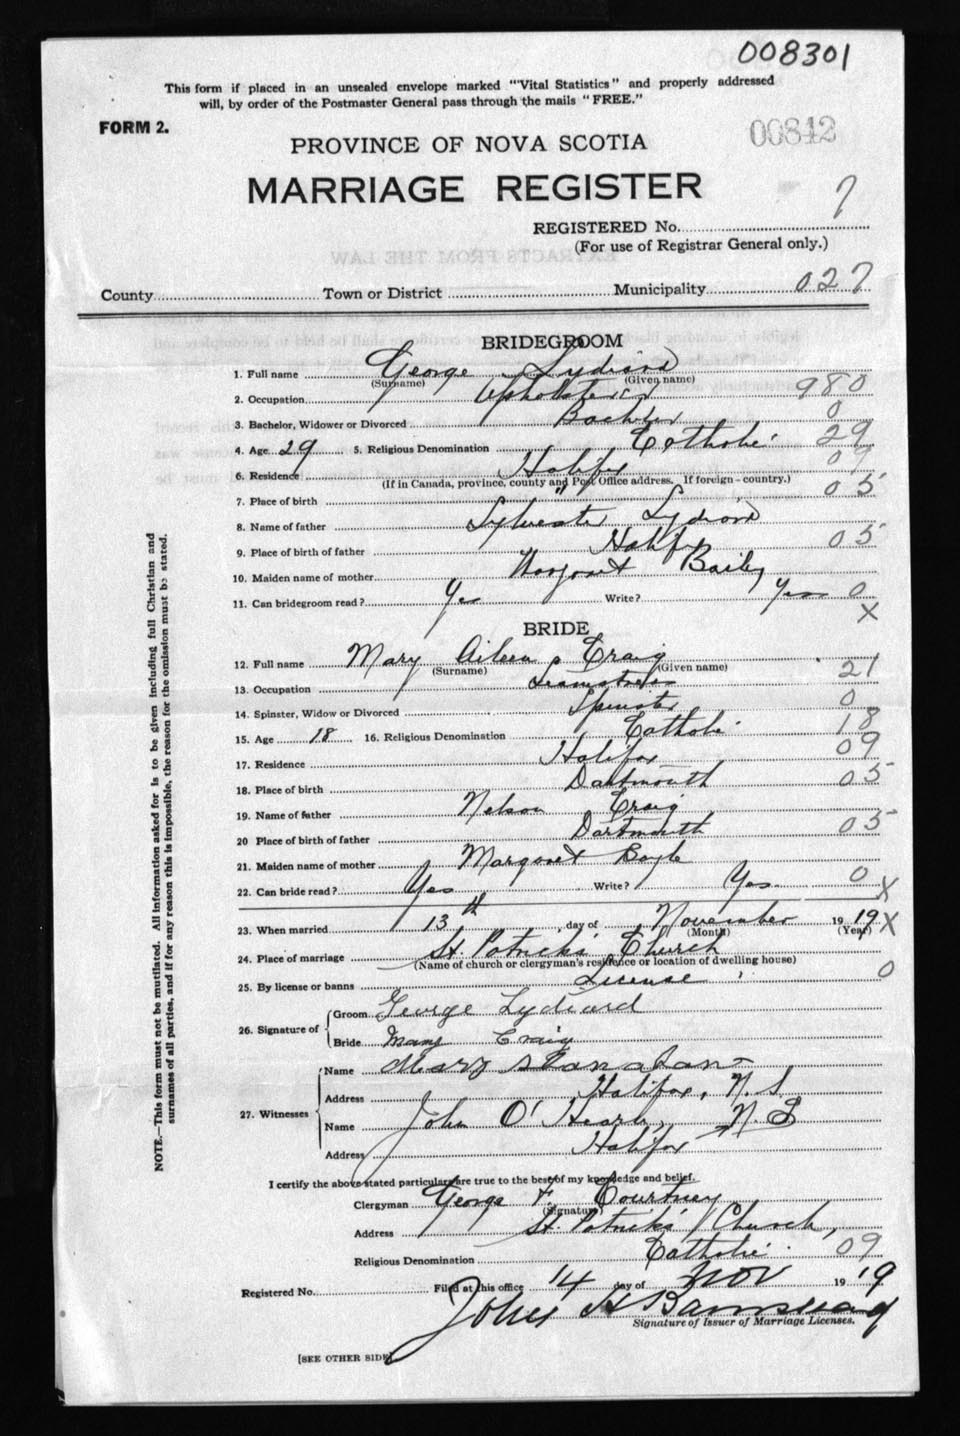 008301
This form if placed in an unsealed envelope marked "Vital Statistics" and properly addressed
will, by order of the Postmaster General pass through the mails "FREE."
FORM 2.
00842
PROVINCE OF NOVA SCOTIA
MARRIAGE REGISTER
REGISTERED No. 7
(For use of Registrar General only.)
County Town or District Municipality 027
BRIDEGROOM
1. Full name George Lydiard
(Surname) (Given name)
2. Occupation Upholsterer 980
3. Bachelor, Widower or Divorced Bachelor 0
4. Age 29 5. Religious Denomination Catholic 29
6. Residence Halifax 09
(If in Canada, province, county and Post Office address. If foreign - country.)
7. Place of birth " 05
8. Name of father Sylvester Lydiard
9. Place of birth of father Halifax 05
10. Maiden name of mother Margaret Bailey
11. Can bridegroom read? Yes Write? Yes 0
X
BRIDE
12. Full name Mary Aileen Craig
(Surname) (Given name)
13. Occupation Seamstress 21
14. Spinster, Widow or Divorced Spinster 0
15. Age 18 16. Religious Denomination Catholic 18
17. Residence Halifax 09
18. Place of birth Dartmouth 05
19. Name of father Nelson Craig
20 Place of birth of father Dartmouth 05
21. Maiden name of mother Margaret Boyle
22. Can bride read? Yes Write? Yes 0 X
23. When married 13th day of November 1919 X
(Month) (Year)
24. Place of marriage St. Patrick's Church
(Name of church or clergyman's residence or location of dwelling house)
25. By license or banns License 0
26. Signature of Groom George Lydiard
Bride Mary Craig
27. Witnesses
Name Mary
Address Halifax, N.S.
Name John O'Hearn,
Address Halifax N.S
I certify the above stated particulars are true to the best of my knowledge and belief.
Clergyman George F. Courtney
(Signature)
Address St. Patrick's Church,
Religious Denomination Catholic 09
Registered No. Filed at this office 14 day of Nov 1919
John H
Signature of Issuer of Marriage Licenses.
[SEE OTHER SIDE]
NOTE.—This form must not be mutilated. All information asked for is to be given including full Christian and
surnames of all parties, and if for any reason this is impossible, the reason for the omission must be stated.